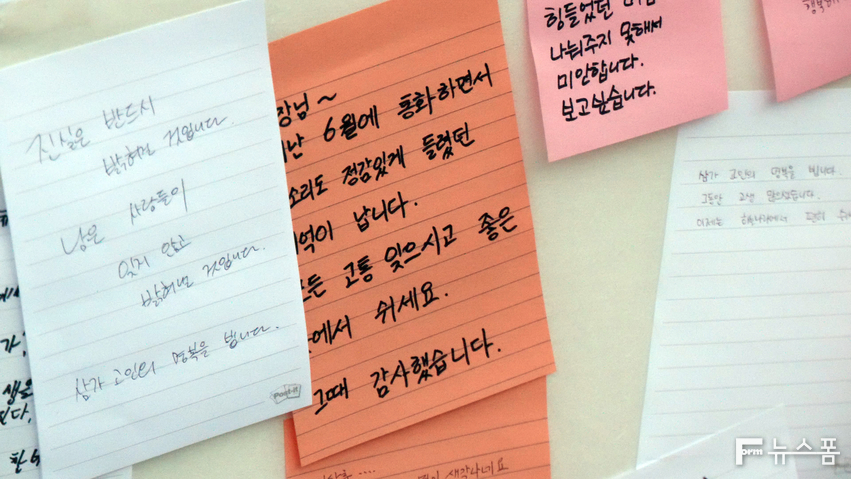 진실은 반드시
밝혀낼 것입니다.
남은 사람들이
잊지 않고
밝혀낼 것입니다.
삼가 고인의 명복을 빕니다.
Post-it
장님~
난 6월에 통화하면서
소리도 정감있게 들렸던
억이 납니다.
든 고통 잊으시고 좋은
에서 쉬세요.
그때 감사했습니다.
생각나네요
힘들었던
나눠주지 못해서
미안합니다.
보고싶습니다.
삼가 고인의 명복을 빕니다.
그동안 고생 많으셨습니다.
이제는 하늘나라에서 편히
Form 뉴스폼